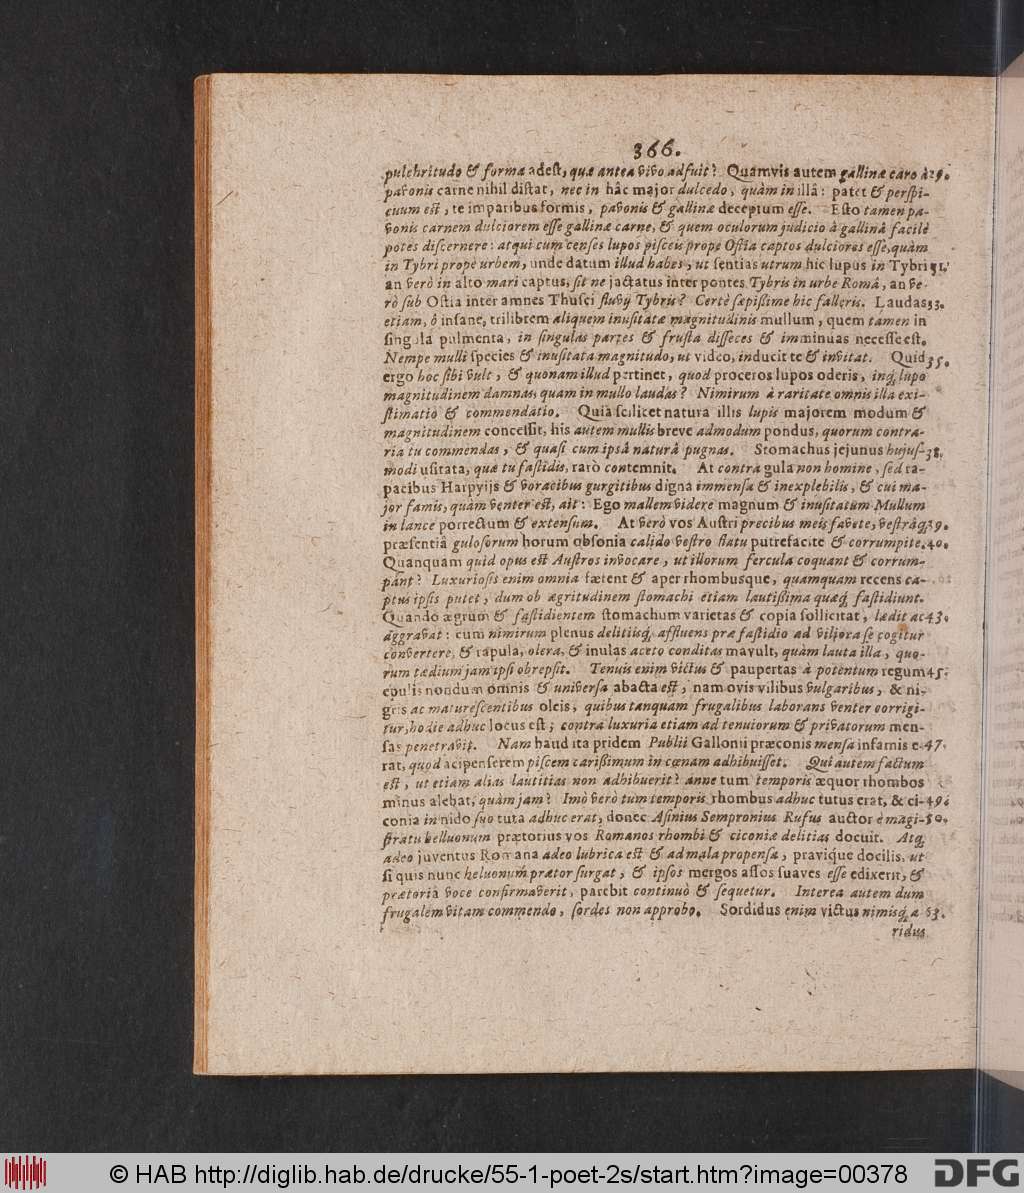 366.
pulchritudo & formæ adest, quæ antea vivo adfuit? Quamvis autem gallinæ caro à 29.
pavonis carne nihil distat, nec in hâc major dulcedo, quàm in illâ: patet & perspi-
cuum est, te imparibus formis, pavonis & gallinæ deceptum esse. Esto tamen pa-
vonis carnem dulciorem esse gallinæ carne, & quem oculorum judicio à gallinâ facilè
potes discernere: atqui cum censes lupos pisceis prope Ostia captos dulciores esse, quàm
in Tybri propè urbem, unde datum illud habes, ut sentias utrum hic lupus in Tybri 31.
an verò in alto mari captus, sit ne jactatus inter pontes Tybris in urbe Româ, an ve-
rò sub Ostia inter amnes Thusci fluvij Tybris? Certè sæpißime hic falleris. Laudas 33.
etiam, ô insane, trilibrem aliquem inusitatæ magnitudinis mullum, quem tamen in
singula pulmenta, in singulas partes & frusta disseces & imminuas necesse est.
Nempe mulli species & inusitata magnitudo, ut video, inducit te & invitat. Quid 35.
ergo hoc sibi vult, & quonam illud pertinet, quod proceros lupos oderis, inq; lupo
magnitudinem damnas, quam in mullo laudas? Nimirum à raritate omnis illa exi-
stimatio & commendatio. Quia scilicet natura illis lupis majorem modum &
magnitudinem concessit, his autem mullis breve admodum pondus, quorum contra-
ria tu commendas, & quasi cum ipsâ naturâ pugnas. Stomachus jejunus hujus- 38.
modi usitata, quæ tu fastidis, rarò contemnit. At contra gula non homine, sed ra-
pacibus Harpyijs & voracibus gurgitibus digna immensa & inexplebilis, & cui ma-
jor famis, quàm venter est, ait: Ego mallem videre magnum & inusitatum Mullum
in lance porrectum & extensum. At verò vos Austri precibus meis favete, vestrâq; 39.
præsentiâ gulosorum horum obsonia calido vestro flatu putrefacite & corrumpite. 40.
Quanquam quid opus est Austros invocare, ut illorum fercula coquant & corrum-
pant? Luxuriosis enim omnia fætent & aper rhombusque, quamquam recens ca-
ptus ipsis putet, dum ob ægritudinem stomachi etiam lautißima quæq; fastidiunt.
Quando ægrum & fastidientem stomachum varietas & copia sollicitat, lædit ac 43.
aggravat: cum nimirum plenus delitiisq; affluens præ fastidio ad viliora se cogitur
convertere, & rapula, olera, & inulas aceto conditas mavult, quàm lauta illa, quo-
rum tædium jam ipsi obrepsit. Tenuis enim victus & paupertas à potentum regum 45.
epulis nondum omnis & universa abacta est, nam ovis vilibus vulgaribus, & ni-
gris ac maturescentibus oleis, quibus tanquam frugalibus laborans venter corrigi-
tur, hodie adhuc locus est; contra luxuria etiam ad tenuiorum & privatorum men-
sas penetravit. Nam haud ita pridem Publii Gallonii præconis mensa infamis e- 47.
rat, quod acipenserem piscem rarißimum in cœnam adhibuisset. Qui autem factum
est, ut etiam alias lautitias non adhibuerit? anne tum temporis æquor rhombos
minus alebat, quàm jam? Imò verò tum temporis rhombus adhuc tutus erat, & ci- 49.
conia in nido suo tuta adhuc erat, donec Asinius Sempronius Rufus auctor è magi- 50.
stratu helluonum prætorius vos Romanos rhombi & ciconiæ delitias docuit. Atq;
adeo juventus Romana adeo lubrica est & ad mala propensa, pravique docilis, ut
si quis nunc heluonum prætor surgat, & ipsos mergos assos suaves esse edixerit, &
prætoriâ voce confirmaverit, parebit continuò & sequetur. Interea autem dum
frugalem vitam commendo, sordes non approbo. Sordidus enim victus nimisq; a- 53.
ridus
© HAB http://diglib.hab.de/drucke/55-1-poet-2s/start.htm?image=00378
DFG